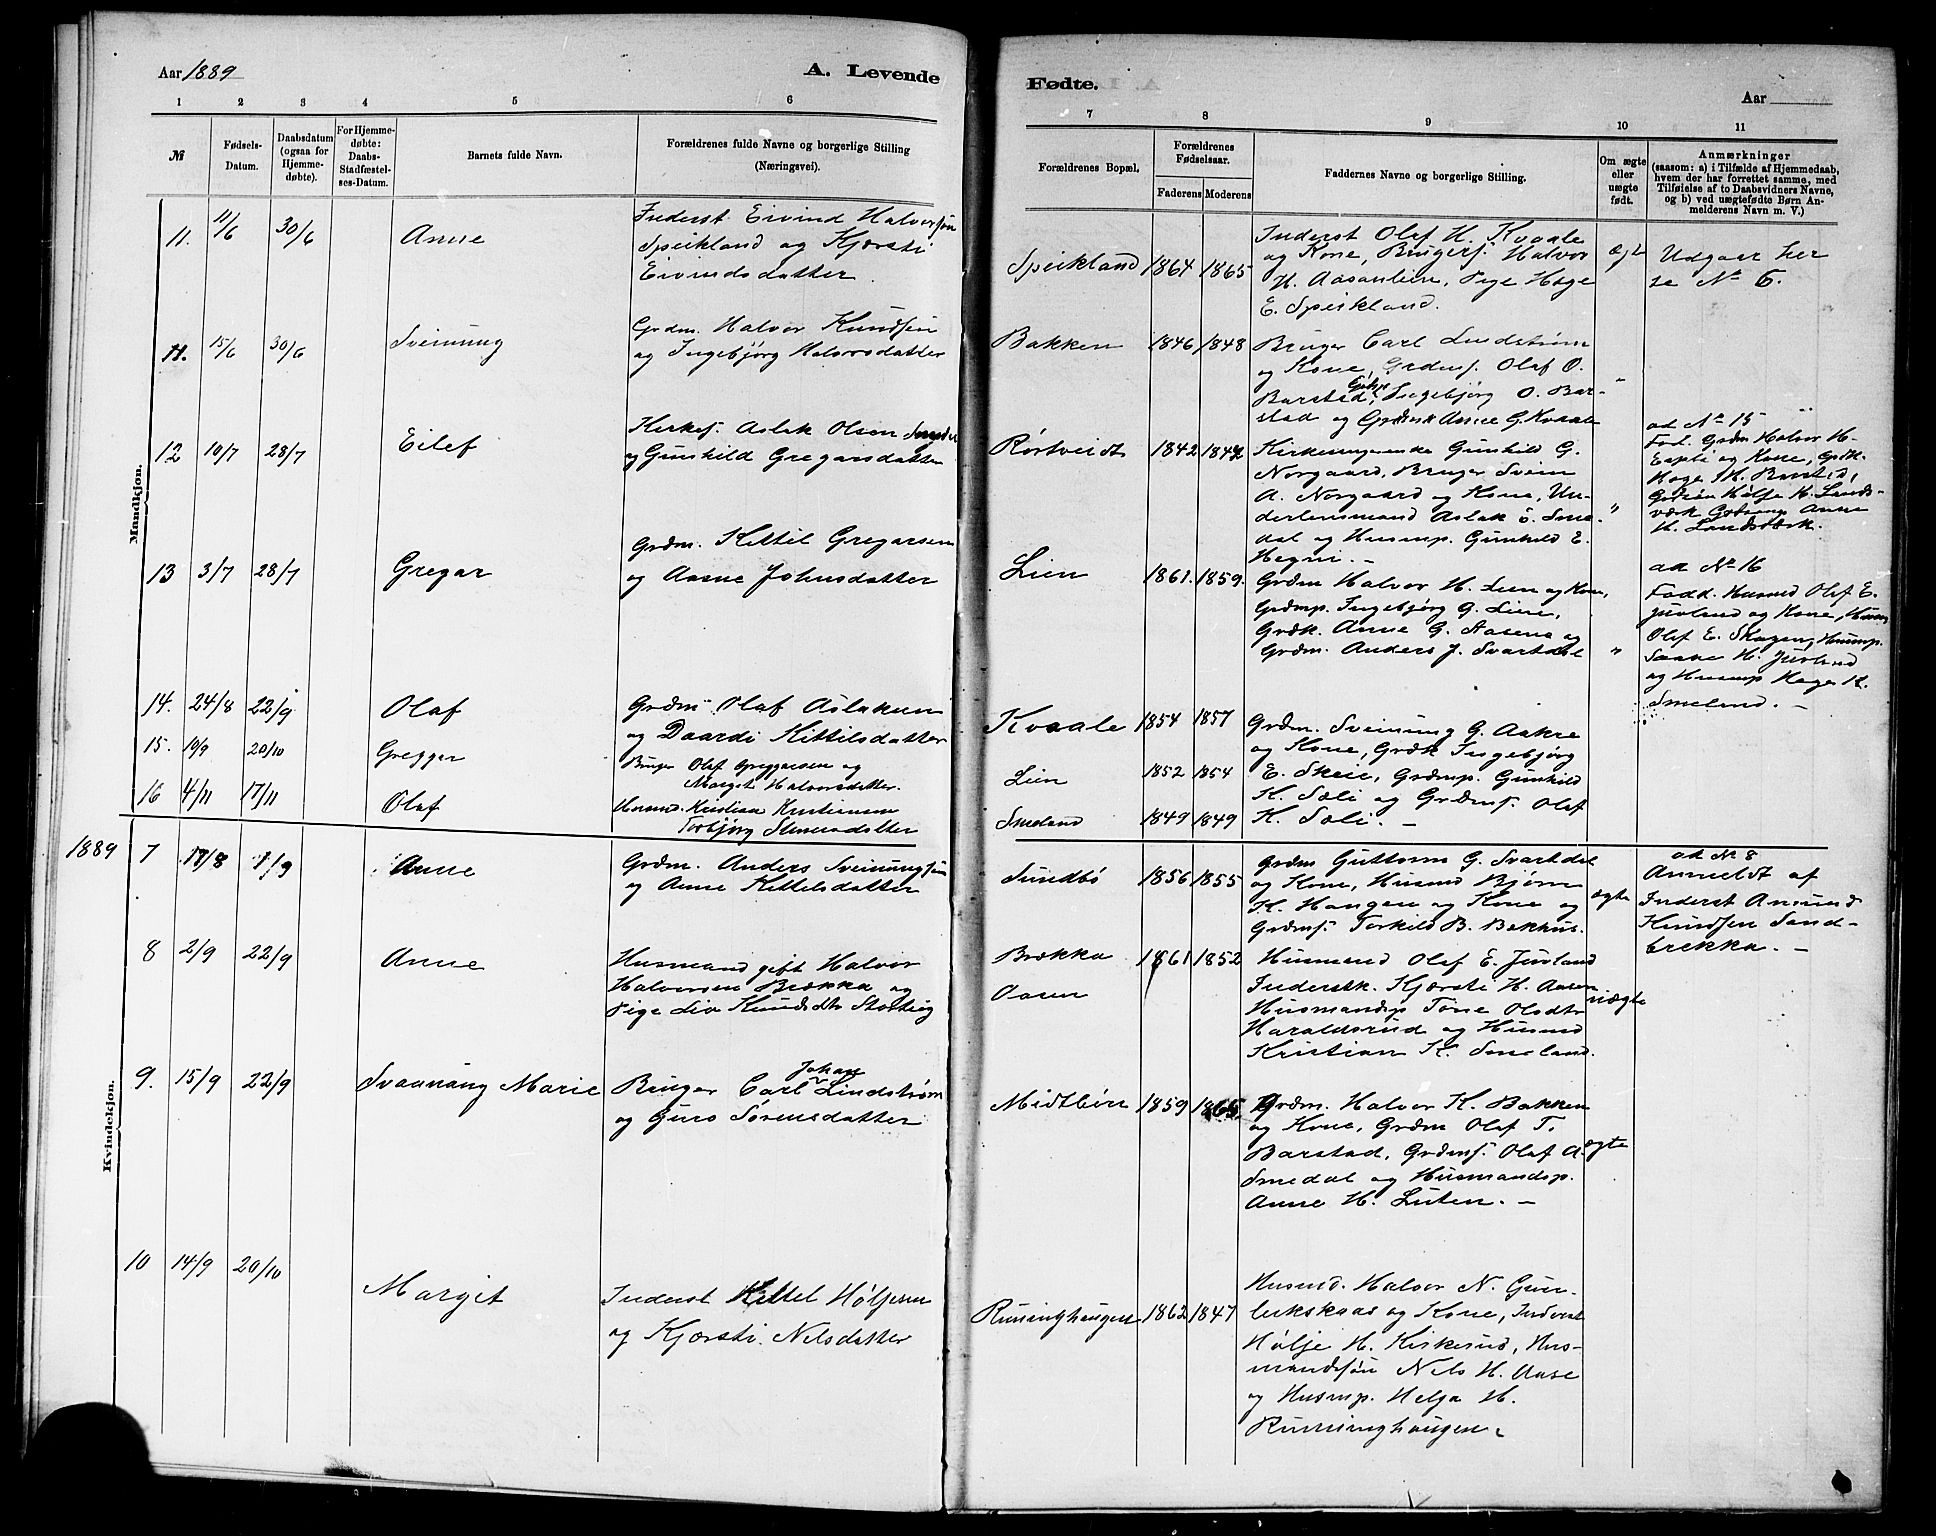 Aar 1889
A. Levende
Fødte.
Aar
1 2 3 4 5 6
7 8 9 10 11
№
Fødsels-
Datum.
Daabsdatum
(ogsaa for
Hjemme-
døbte).
For Hjemme-
døbte:
Daabs-
Stadfæstel-
ses-Datum.
Barnets fulde Navn.
Forældrenes fulde Navne og borgerlige Stilling
(Næringsvei).
Forældrenes Bopæl.
Forældrenes
Fødselsaar.
Faderens Moderens
Faddernes Navne og borgerlige Stilling.
Om ægte
eller
uægte
født.
Anmærkninger
(saasom: a) i Tilfælde af Hjemmedaab,
hvem der har forrettet samme, med
Tilføielse af to Daabsvidners Navne,
og b) ved uægtefødte Børn An-
melderens Navn m. V.)
Mandkjøn.
11. 11/6 30/6 Anne
Inderst Eivind Halvorsøn
Speikland og Kjersti
Eivindsdatter.
Speikland 1864 1865
Inderst Olaf H. Kvaale
og Kone, Brugers. Halvor
H. Aasanleien, Pige Hæge
E. Speikland.
Udgaar her
se № 6.
11. 15/6 30/6 Sveinung
Grdm. Halvor Knudsen
og Ingebjørg Halvorsdatter
Bakken 1846 1848
Bruger Carl Lindstrøm
og Kone, Grdms. Olaf O.
Barstad, Ingebjørg O. Bar-
stad og Anne G. Kvaale
"
12 10/7 28/7 Eilef
Kirkes. Aslak Olsen Smedal
og Gunhild Gregarsdatter
Rørtveidt 1842 1847
Kirkesangerenke Gunhild G.
Norgaard, Bruger Svein
A. Norgaard og Kone, Un-
derlensmand Aslak O. Sme-
dal og Husmp. Gunhild E.
Hegni. —
"
ad № 15
Fad. Grdm Halvor H.
og Kone,
Hæge H. Barstad,
Hølje H. Lands-
værk Anne
H. Landsværk.
13 3/7 28/7 Gregar
Grdm. Kittil Gregarsen
og Aasne Johnsdatter
Lien 1861. 1859.
Grdm Halvor H. Lien og Kone,
Grdmp. Ingebjørg G. Lien,
Grdk. Anne G. Aasen og
Grdm. Anders J. Svartdal
"
ad № 16
Fadd. Husmd Olaf E.
Juvland og Kone,
Olaf E. Skogen, Husmp.
H. Juvland
og Husmp Hæge K.
Smeland. —
14. 24/8 22/9 Olaf
Grdm Olaf Aslaksen
og Daardi Kittilsdatter
Kvaale 1854 1857
Grdm. Sveinung G. Aakre
og Kone, Grdk Ingebjørg
E. Skeie, Grdmp. Gunhild
K. Sæli og Grdms. Olaf
K. Sæli. —
15. 10/9 20/10 Greggar
Bruger Olaf Greggarsen og
Margit Halvorsdatter.
Lien 1852 1854
16 4/11 17/11 Olaf
Husmd. Kristian Kristiansen
Torbjørg
Smeland 1849 1849
Kvindekjøn.
1889 7 17/8 1/9 Anne
Grdm. Anders Sveinungsen
og Anne Kittelsdatter
Sundbø 1856 1855
Grdm Guttorm G. Svartdal
og Kone, Husmd Bjørn
K. Haugen og Kone og
Grdms. Torkild B. Bakhus.
ægte
ad № 8
Anmeldt af
Inderst Amund
Knudsen Sand-
brekka. —
8 2/9 22/9 Anne
Husmand gift Halvor
Halvorsen Brækka og
Pige Liv Knudsdtr
Brækka 1861 1852
Aasen
Husmand Olaf E. Juvland
Inderstk. Kjersti H. Aasen
Husmandsp Tone Olsdtr
Haraldsrud og Husmd
Kristian K. Smeland.
uægte
9. 15/9 22/9 Svanaug Marie
Bruger Carl Johan Lindstrøm
og Guro Sørensdatter
Midtbøn 1859 1865
Grdm. Halvor K. Bakken
og Kone, Grdm Olaf T.
Barstad, Grdms. Olaf A.
Smedal og Husmandsp.
Anne H. Luten. —
ægte
10 14/9 20/10 Margit
Inderst Kittel Høljesen
og Kjersti Nelsdatter
Runninghaugen 1862 1847
Husmd. Halvor N. Gun-
lekskaas og Kone, Inderst
Hølje H. Kirkesund, Hus-
mandssøn Nels H. Aase
og Husmp. Helga H.
Runninghaugen.